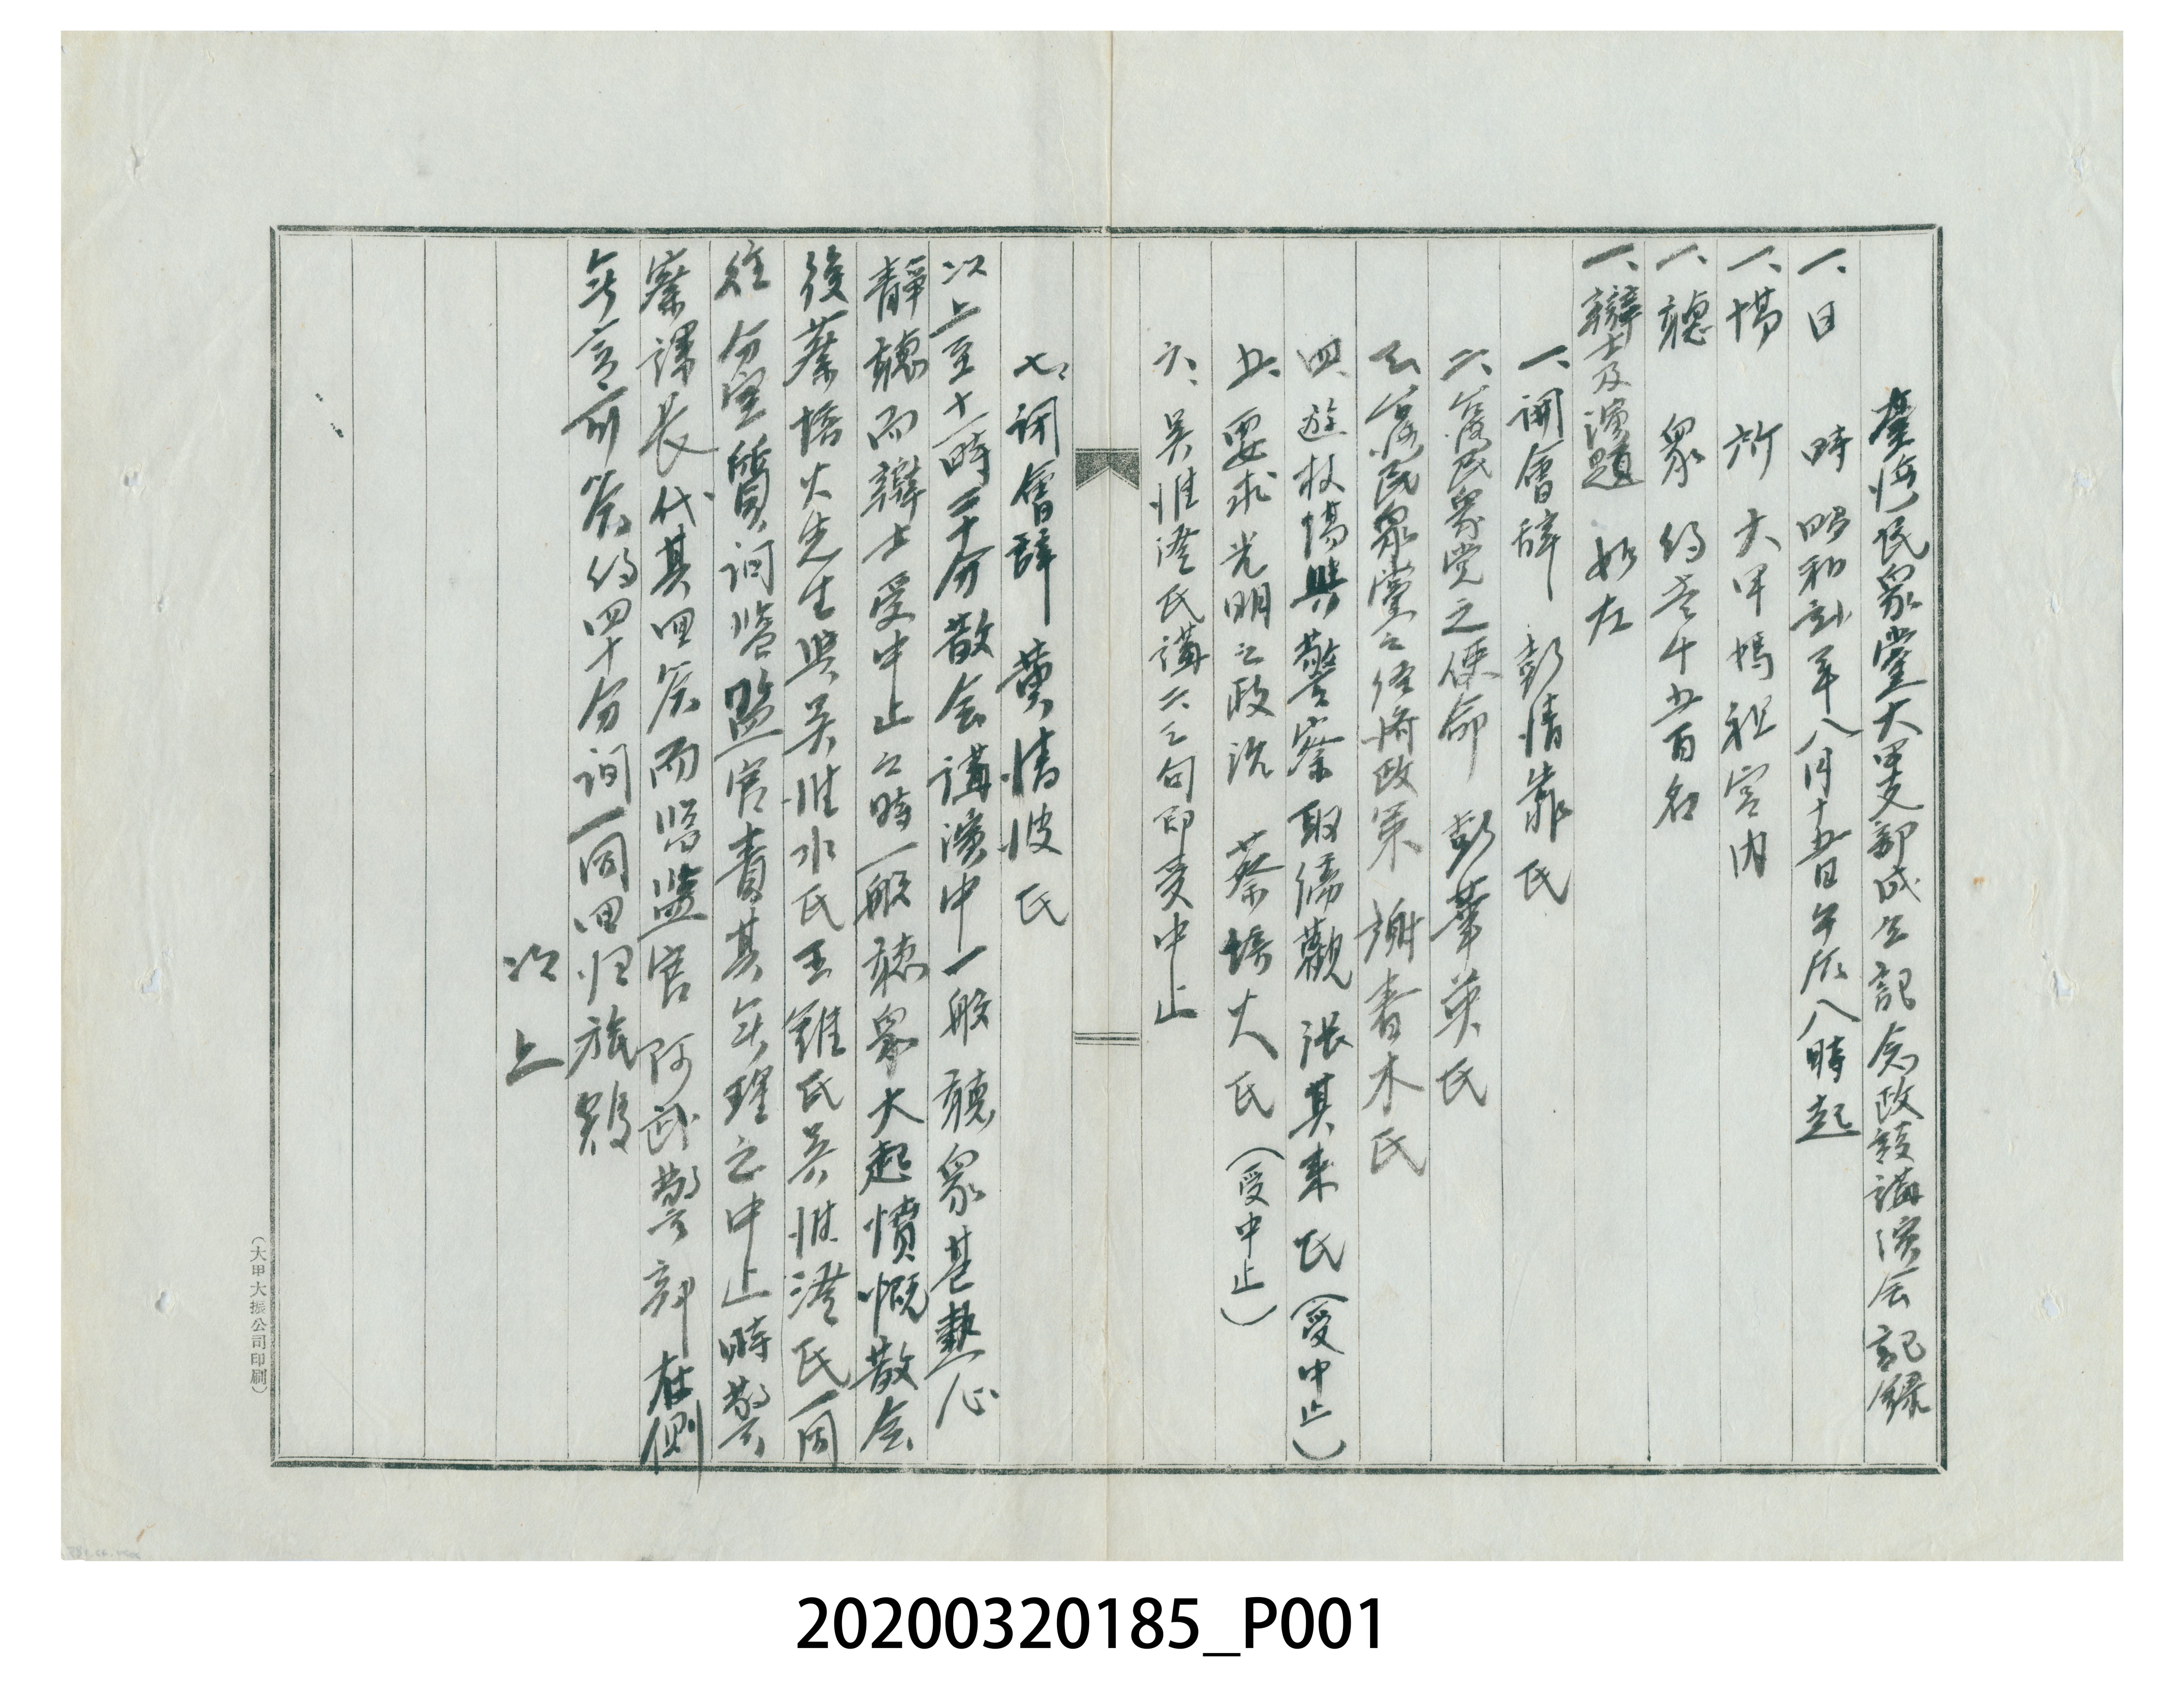 臺湾民衆黨大甲支部成立記念政談講演会記録
一、日　時　昭和弍年八月十五日午后八時起
一、場　所　大甲媽祖宮内
一、聽　衆　約壱千五百名
一、辯士及演題　如左
一、開會辞　彭清靠氏
二、台湾民衆党之使命　彭華英氏
三、台湾民衆黨之経済政策　謝春木氏
四、遊技場與警察取傍觀　張其来氏（受中止）
五、要求光明之政治　蔡培火氏（受中止）
六、吴淮澄氏講六七句即受中止
七、闭會辞　黄清波氏
以上至十一時三十分散会講演中一般聽衆甚熱心
靜聽而辯士受中止之時一般聽衆大起憤慨散会
後蔡培火先生與吴淮水氏王錐氏吴淮澄氏一同
往分室質问臨監官責其無理之中止時警
察課長代其回答而臨監官阿武警部在側
無言可答約四十分间一同回归旅館
以上
（大甲大振公司印刷）
20200320185_P001